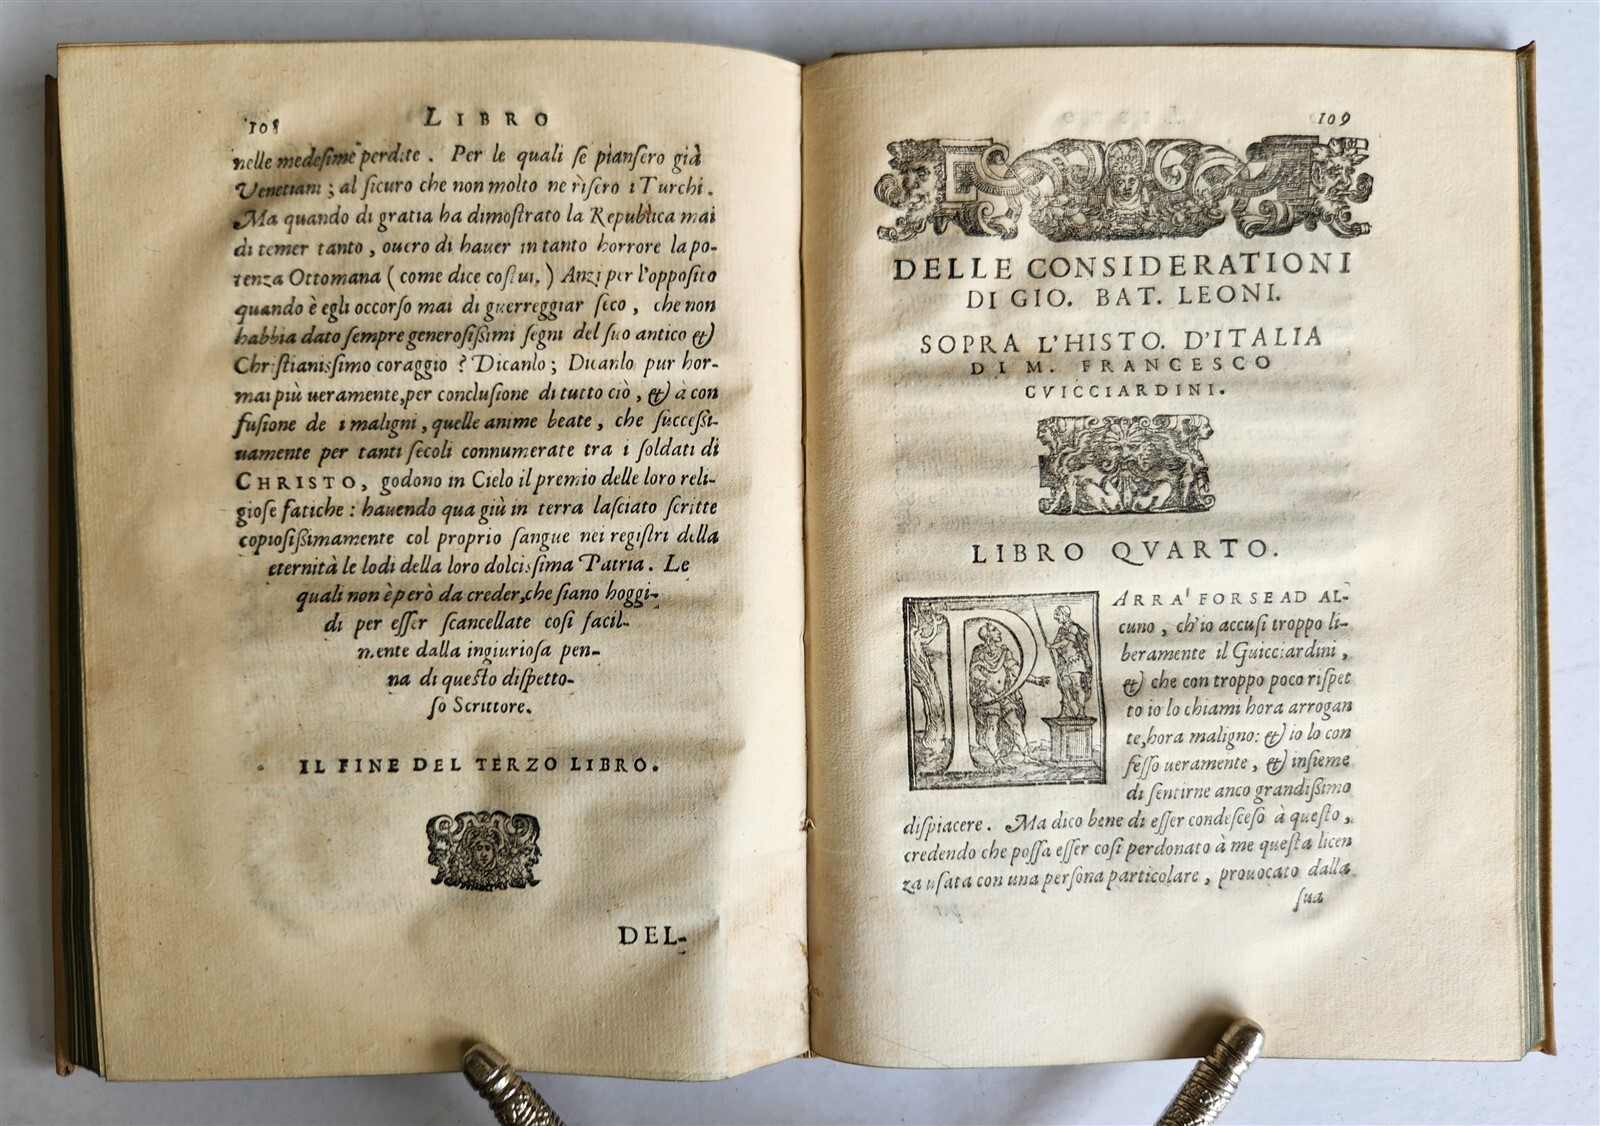 108 LIBRO
nelle medesime perdite. Per le quali se piansero già
Venetiani; al sicuro che non molto ne risero i Turchi.
Ma quando di gratia ha dimostrato la Republica mai
di temer tanto, ouero di hauer in tanto horrore la po-
tenza Ottomana (come dice costui.) Anzi per l'opposito
quando è egli occorso mai di guerreggiar seco, che non
habbia dato sempre generosissimi segni del suo antico &
Christianissimo coraggio? Dicanlo; Dicanlo pur hor-
mai più ueramente, per conclusione di tutto ciò, & à con
fusione de i maligni, quelle anime beate, che successi-
uamente per tanti secoli connumerate tra i soldati di
CHRISTO, godono in Cielo il premio delle loro reli-
giose fatiche: hauendo qua giù in terra lasciato scritte
copiosissimamente col proprio sangue nei registri della
eternità le lodi della loro dolcissima Patria. Le
quali non è però da creder, che siano hoggi-
di per esser scancellate così facil-
mente dalla ingiuriosa pen-
na di questo dispetto-
so Scrittore.
IL FINE DEL TERZO LIBRO.
DEL-
109
DELLE CONSIDERATIONI
DI GIO. BAT. LEONI.
SOPRA L'HISTO. D'ITALIA
DI M. FRANCESCO
GVICCIARDINI.
LIBRO QVARTO.
PARRA' FORSE AD AL-
cuno, ch'io accusi troppo li-
beramente il Guicciardini,
& che con troppo poco rispet
to io lo chiami hora arrogan
te, hora maligno: & io lo con
fesso ueramente, & insieme
di sentirne anco grandissimo
dispiacere. Ma dico bene di esser condesceso à questo,
credendo che possa esser così perdonato à me questa licen
za usata con una persona particolare, prouocato dalla
sua